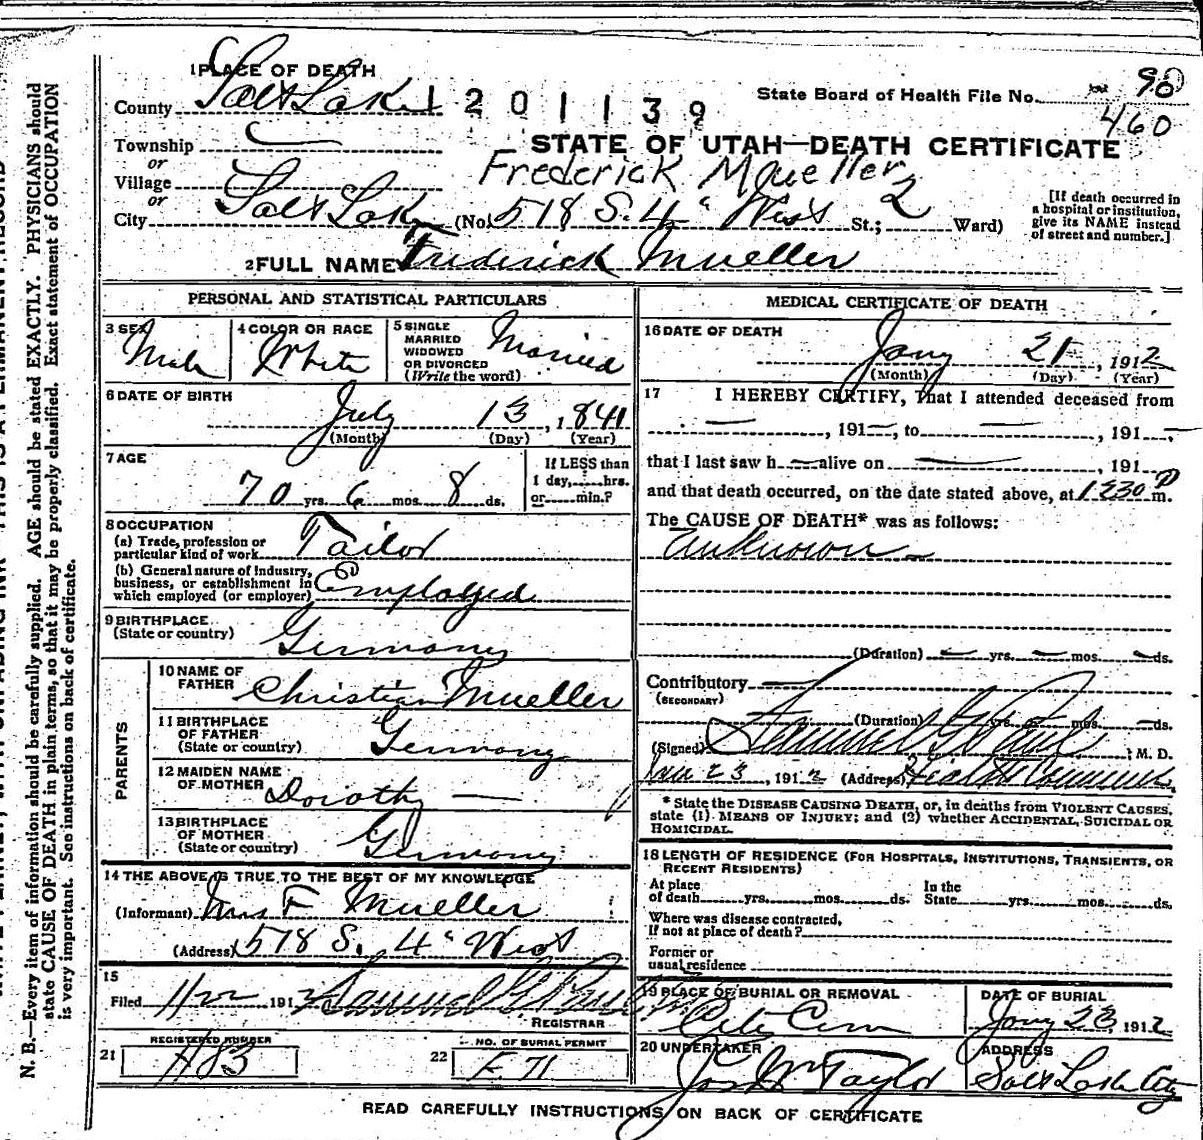 1 PLACE OF DEATH
County Salt Lake 1201139 State Board of Health File No. 90
460
Township
STATE OF UTAH—DEATH CERTIFICATE
or
Village Frederick Mueller
or
City Salt Lake (No. 518 S. 4" West St.; 2 Ward)
[If death occurred in a hospital or institution, give its NAME instead of street and number.]
2 FULL NAME Frederick Mueller
PERSONAL AND STATISTICAL PARTICULARS
3 SEX Male
4 COLOR OR RACE White
5 SINGLE MARRIED WIDOWED OR DIVORCED (Write the word) Married
6 DATE OF BIRTH
July 13, 1841
(Month) (Day) (Year)
7 AGE
70 yrs. 6 mos. 8 ds.
If LESS than 1 day, hrs. or min.?
8 OCCUPATION
(a) Trade, profession or particular kind of work Tailor
(b) General nature of industry, business, or establishment in which employed (or employer) Employed
9 BIRTHPLACE
(State or country) Germany
PARENTS
10 NAME OF FATHER Christian Mueller
11 BIRTHPLACE OF FATHER (State or country) Germany
12 MAIDEN NAME OF MOTHER Dorothy —
13 BIRTHPLACE OF MOTHER (State or country) Germany
14 THE ABOVE IS TRUE TO THE BEST OF MY KNOWLEDGE
(Informant) Mrs F Mueller
(Address) 518 S. 4" West
15
Filed 191
REGISTRAR
21 REGISTERED NUMBER
22 NO. OF BURIAL PERMIT
E 71
MEDICAL CERTIFICATE OF DEATH
16 DATE OF DEATH
Jany 21, 1912
(Month) (Day) (Year)
17 I HEREBY CERTIFY, That I attended deceased from
—, 191—, to —, 191—,
that I last saw h— alive on —, 191
and that death occurred, on the date stated above, at m.
The CAUSE OF DEATH* was as follows:
Unknown —
(Duration) — yrs. — mos. — ds.
Contributory —
(SECONDARY)
(Duration) yrs. mos. — ds.
(Signed) M. D.
Jan 23, 1912 (Address)
* State the DISEASE CAUSING DEATH, or, in deaths from VIOLENT CAUSES, state (1) MEANS OF INJURY; and (2) whether ACCIDENTAL, SUICIDAL OR HOMICIDAL.
18 LENGTH OF RESIDENCE (FOR HOSPITALS, INSTITUTIONS, TRANSIENTS, OR RECENT RESIDENTS)
At place of death yrs. mos. ds. In the State yrs. mos. ds.
Where was disease contracted, If not at place of death?
Former or usual residence
19 PLACE OF BURIAL OR REMOVAL City Cem
DATE OF BURIAL Jany 23, 1912
20 UNDERTAKER Jos Wm Taylor
ADDRESS Salt Lake City
READ CAREFULLY INSTRUCTIONS ON BACK OF CERTIFICATE
N. B.—Every item of information should be carefully supplied. AGE should be stated EXACTLY. PHYSICIANS should
state CAUSE OF DEATH in plain terms, so that it may be properly classified. Exact statement of OCCUPATION
is very important. See instructions on back of certificate.